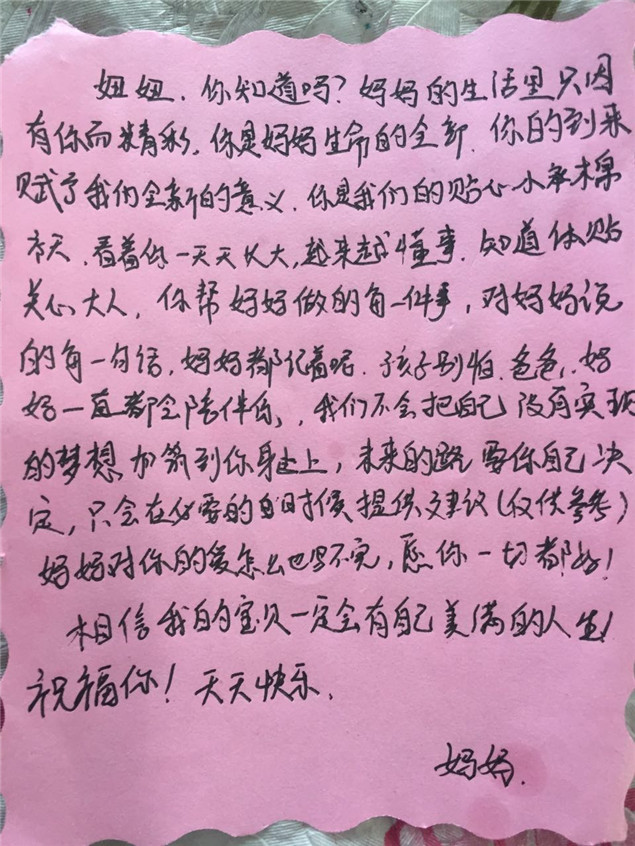 妞妞、你知道吗？妈妈的生活里只因
有你而精彩，你是妈妈生命的全部、你的到来
赋予我们全新的意义、你是我们的贴心小家棉
袄、看着你一天天长大，越来越懂事、知道体贴
关心大人，你帮妈妈做的每一件事，对妈妈说
的每一句话，妈妈都记着呢、孩子别怕、爸爸、妈
妈一直都会陪伴你，我们不会把自己没有实现
的梦想加筑到你身上，未来的路要你自己决
定，只会在必要的时候提供建议（仅供参考）
妈妈对你的爱怎么也写不完，愿你一切都好！
相信我的宝贝一定会有自己美满的人生！
祝福你！天天快乐、
妈妈、